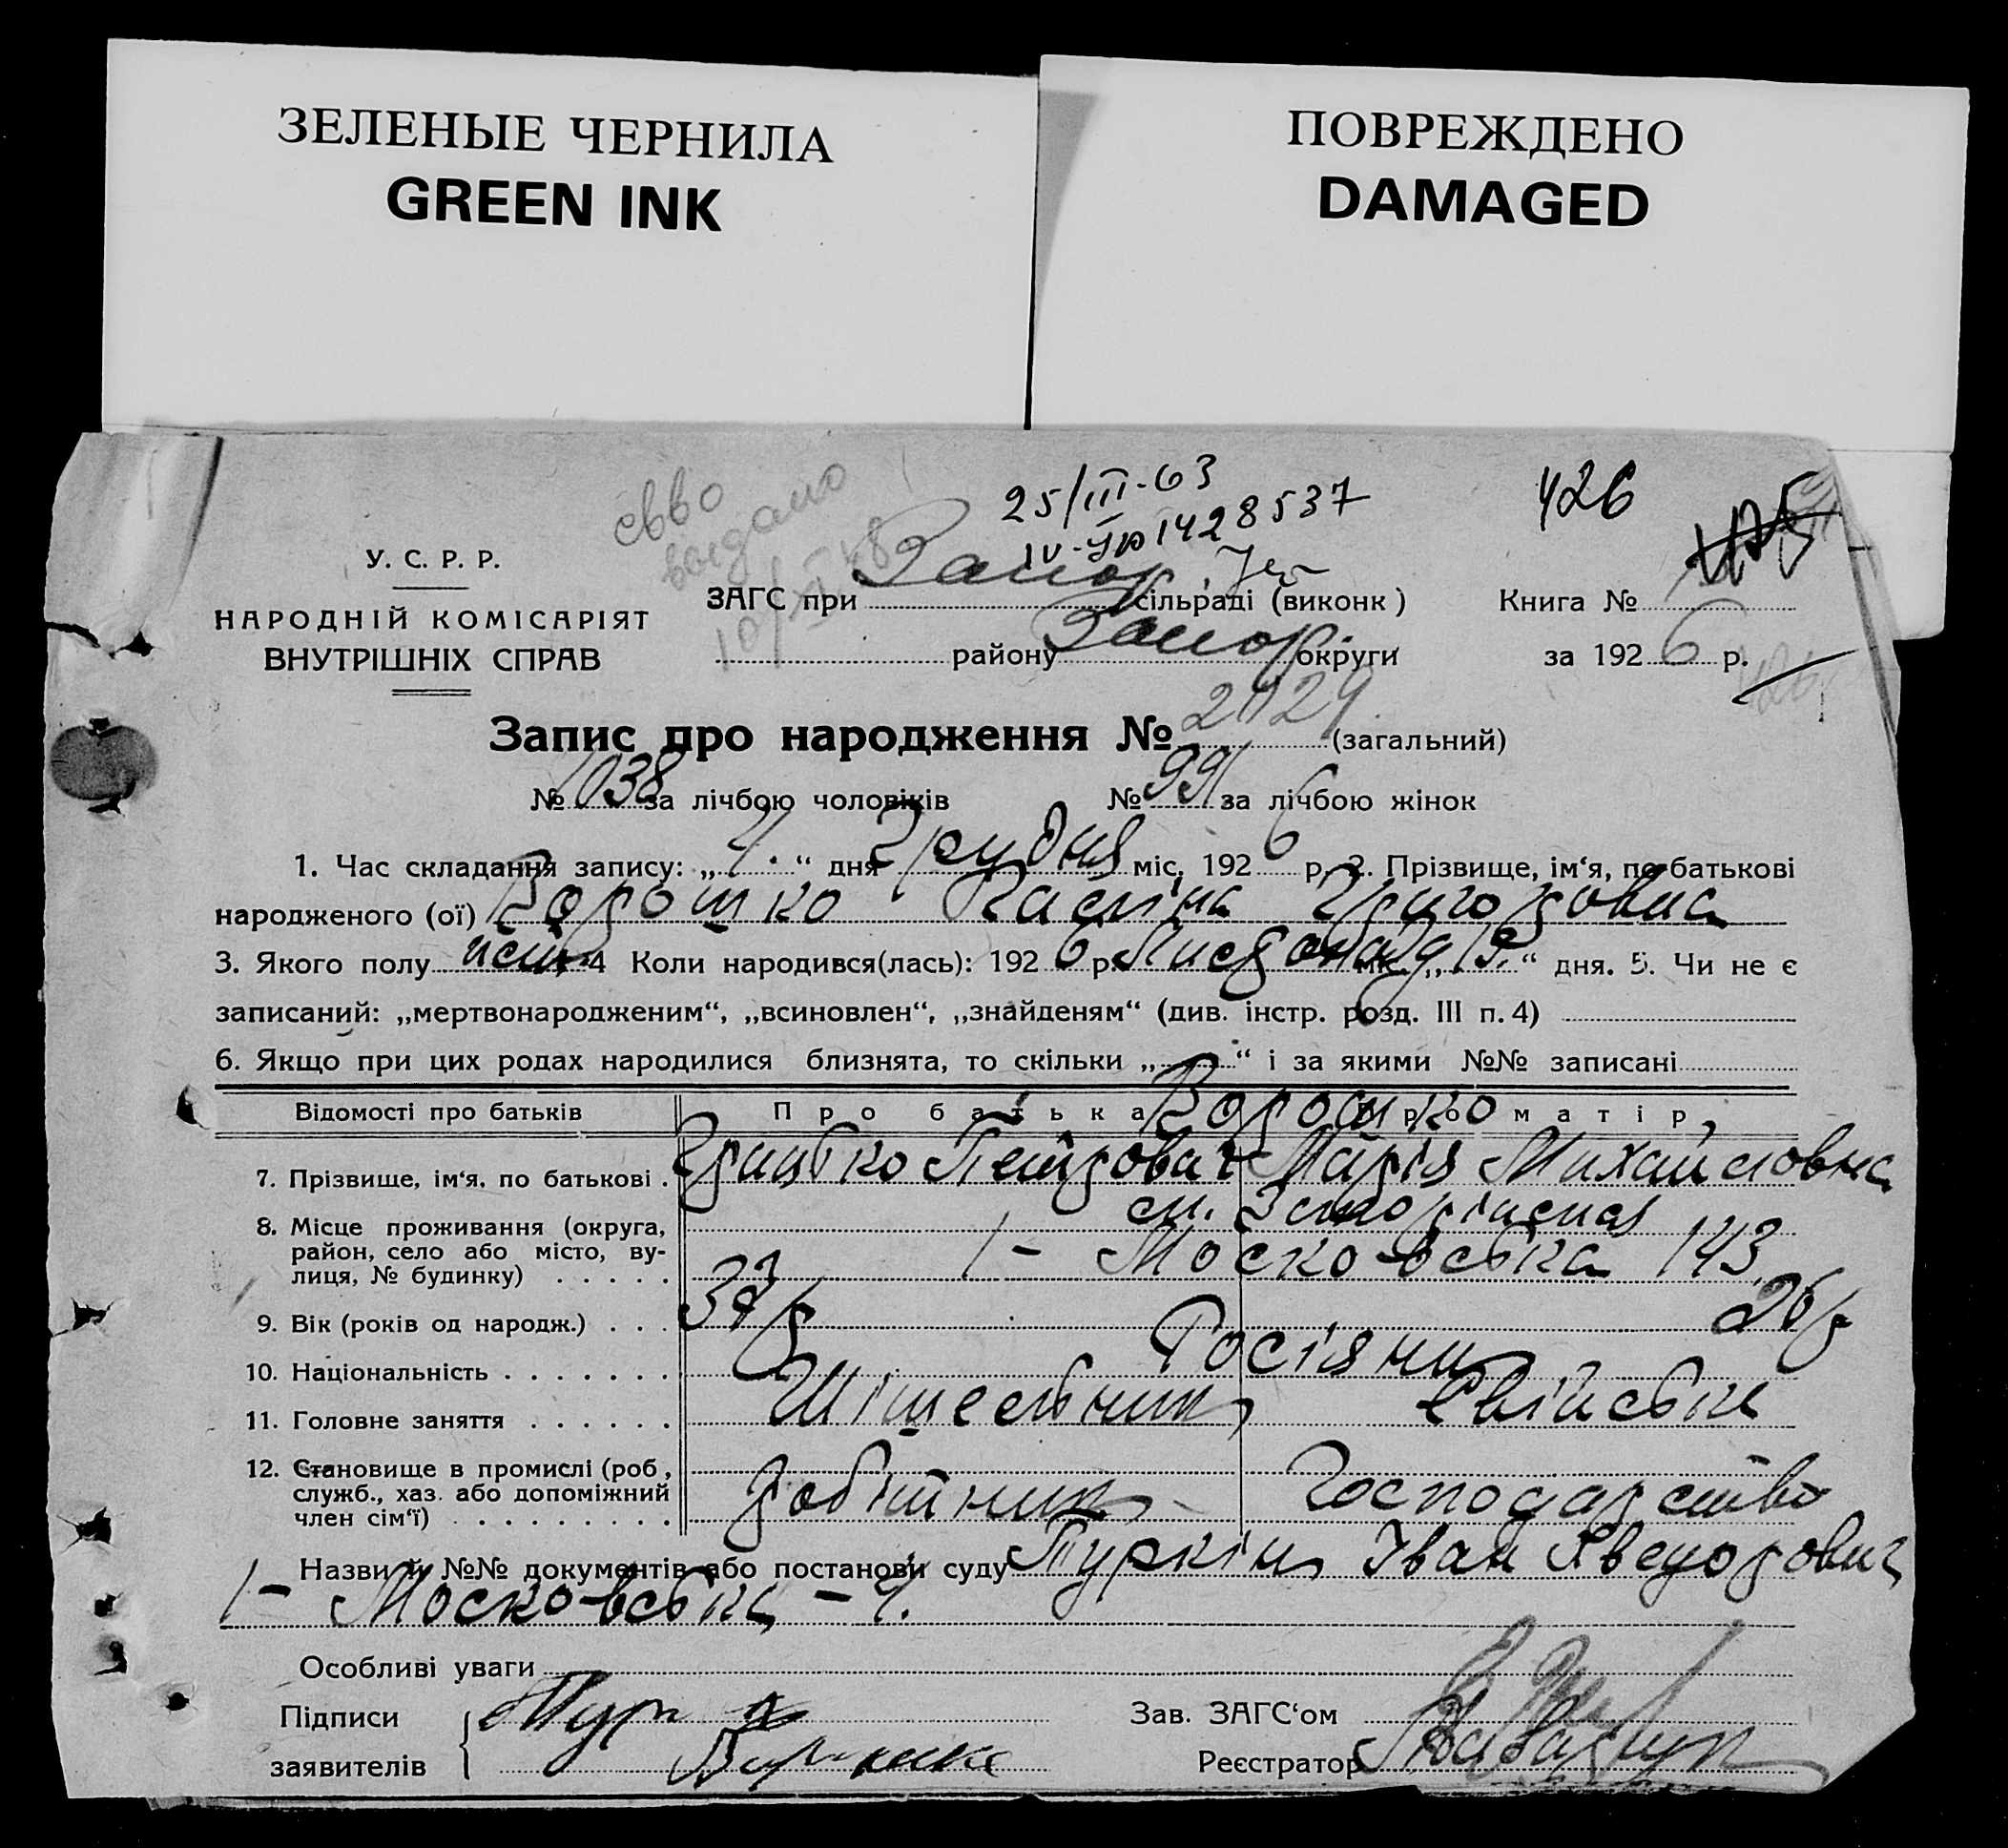 ЗЕЛЕНЫЕ ЧЕРНИЛА
GREEN INK
ПОВРЕЖДЕНО
DAMAGED
25/III-63
IV-ЯЮ 1428537
426
свво
выдано
У. С. Р. Р.
НАРОДНІЙ КОМІСАРІЯТ
ВНУТРІШНІХ СПРАВ
ЗАГС при Запор. сільраді (виконк)
району Запор. округи
Книга №
за 1926 р.
Запис про народження № 2029 (загальний)
№ 1038 за лічбою чоловіків № 991 за лічбою жінок
1. Час складання запису: „4.“ дня Грудня міс. 1926 р. 2. Прізвище, ім‘я, по батькові
народженого (ої) Ворошко Григоровна
3. Якого полу жін. 4 Коли народився(лась): 1926 р. Листопада міс. „19.“ дня. 5. Чи не є
записаний: „мертвонародженим“, „всиновлен“, „знайденям“ (див. інстр. розд. III п. 4)
6. Якщо при цих родах народилися близнята, то скільки „ “ і за якими №№ записані
Відомості про батьків Про батька Про матір
Ворошко
7. Прізвище, ім‘я, по батькові . Грицько Петрович Марія Михайловна
8. Місце проживання (округа, район, село або місто, вулиця, № будинку) . . . . .
1 - Московська 143
9. Вік (років од народж.) . . . 37 р 26 р
10. Національність . . . . . . . Росіяни
11. Головне заняття . . . . . . Свійське
12. Становище в промислі (роб, служб., хаз. або допоміжний член сім‘ї) . . . . . . . . . робітник Господарство
Назви й №№ документів або постанови суду Туркін Іван
1 - Московська - 4.
Особливі уваги
Підписи
заявителів
Зав. ЗАГС‘ом
Реєстратор